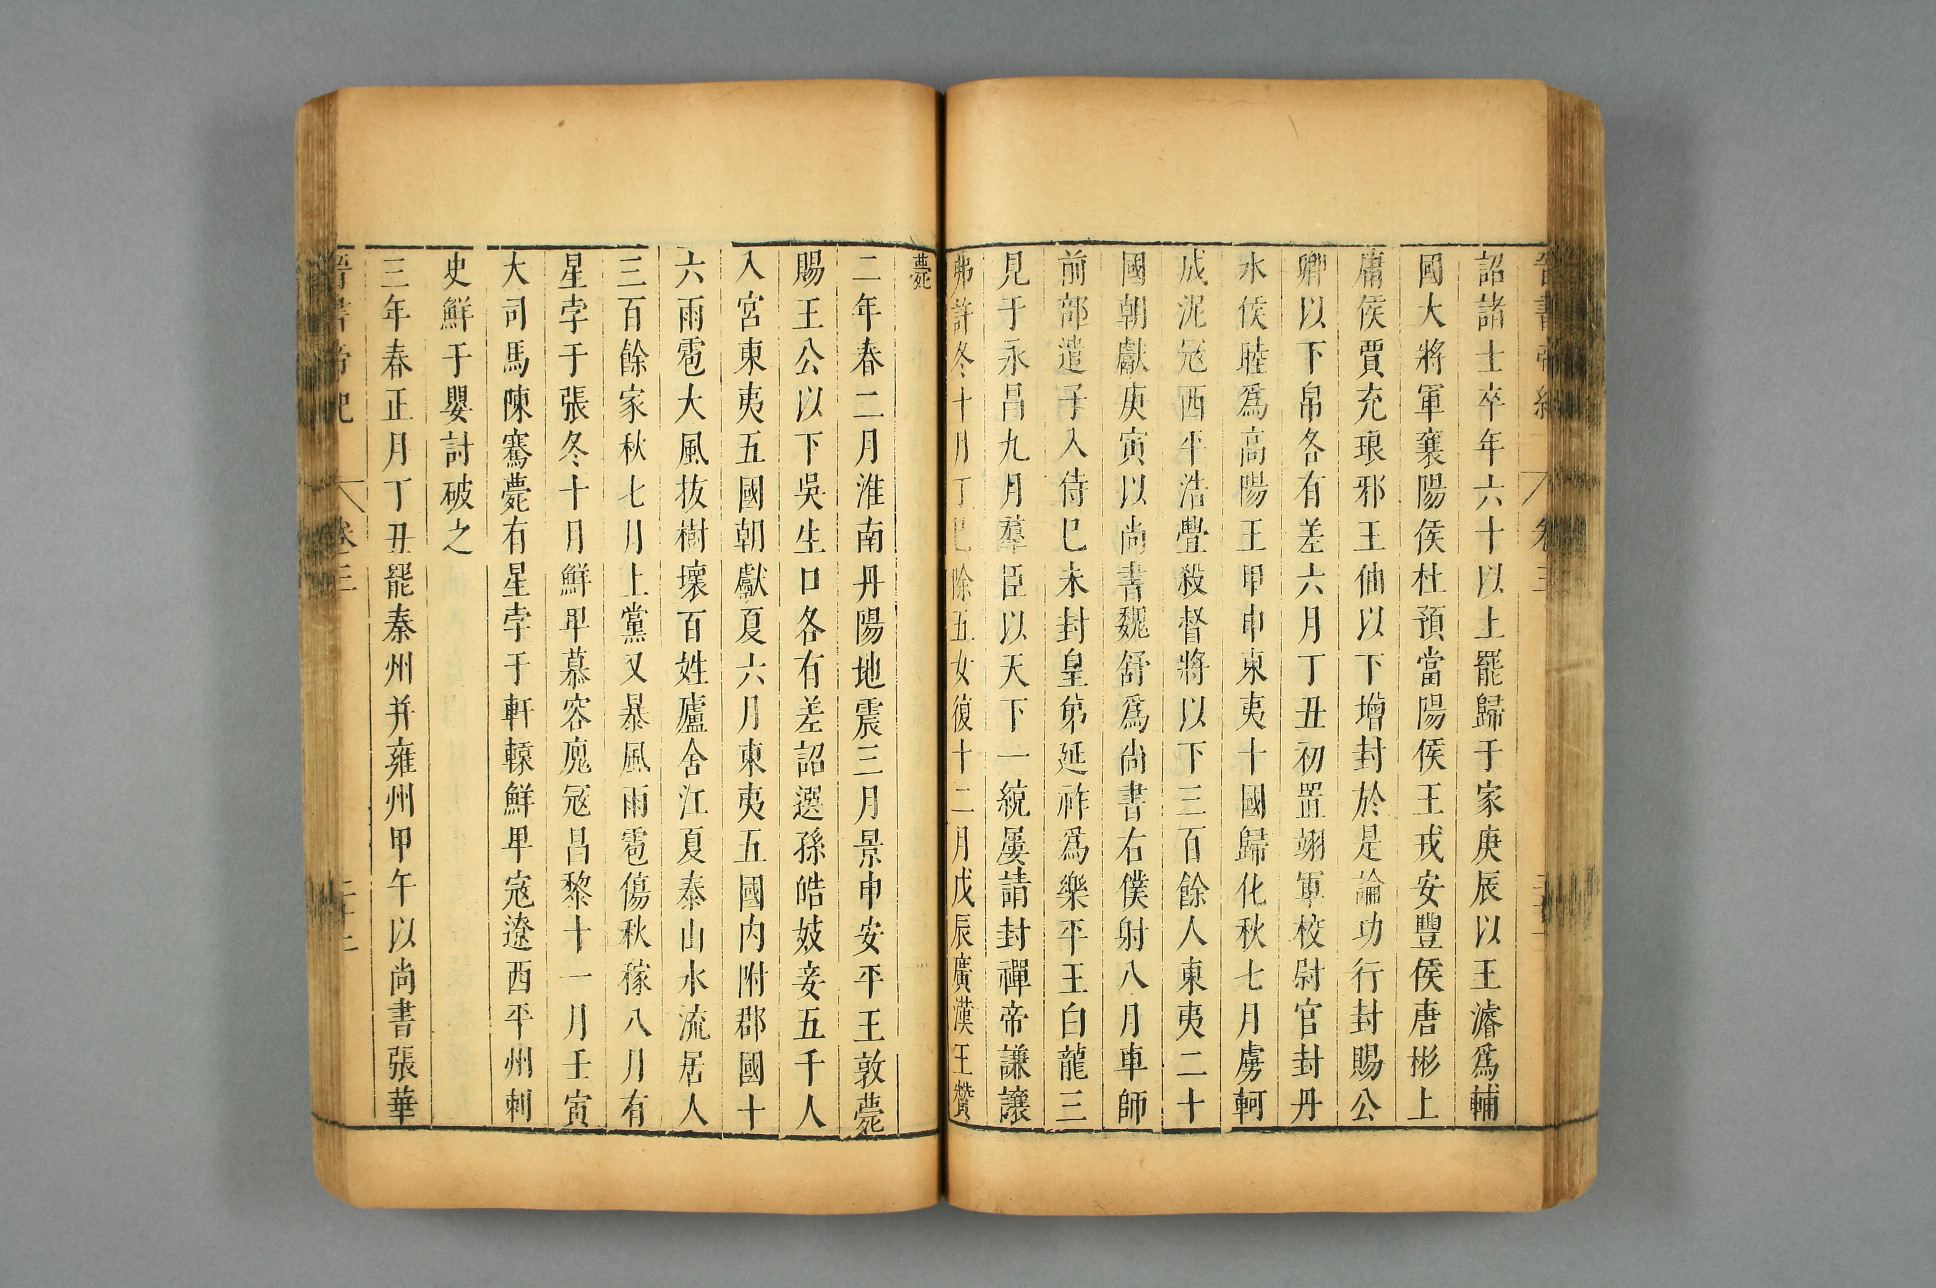 晉書帝紀 卷三
詔諸士卒年六十以上罷歸于家庚辰以王濬爲輔
國大將軍襄陽侯杜預當陽侯王戎安豐侯唐彬上
庸侯賈充琅邪王伷以下增封於是論功行封賜公
卿以下帛各有差六月丁丑初置翊軍校尉官封丹
水侯睦爲高陽王甲申東夷十國歸化秋七月虜軻
成泥寇西平浩亹殺督將以下三百餘人東夷二十
國朝獻庚寅以尚書魏舒爲尚書右僕射八月車師
前部遣子入侍己未封皇弟延祚爲樂平王白龍三
見于永昌九月羣臣以天下一統屢請封禪帝謙讓
弗許冬十月丁巳除五女復十二月戊辰廣漢王贊
薨
二年春二月淮南丹陽地震三月景申安平王敦薨
賜王公以下吳生口各有差詔選孫皓妓妾五千人
入宮東夷五國朝獻夏六月東夷五國內附郡國十
六雨雹大風拔樹壞百姓廬舍江夏泰山水流居人
三百餘家秋七月上黨又暴風雨雹傷秋稼八月有
星孛于張冬十月鮮卑慕容廆寇昌黎十一月壬寅
大司馬陳騫薨有星孛于軒轅鮮卑寇遼西平州刺
史鮮于嬰討破之
三年春正月丁丑罷秦州并雍州甲午以尚書張華
晉書帝紀 卷三